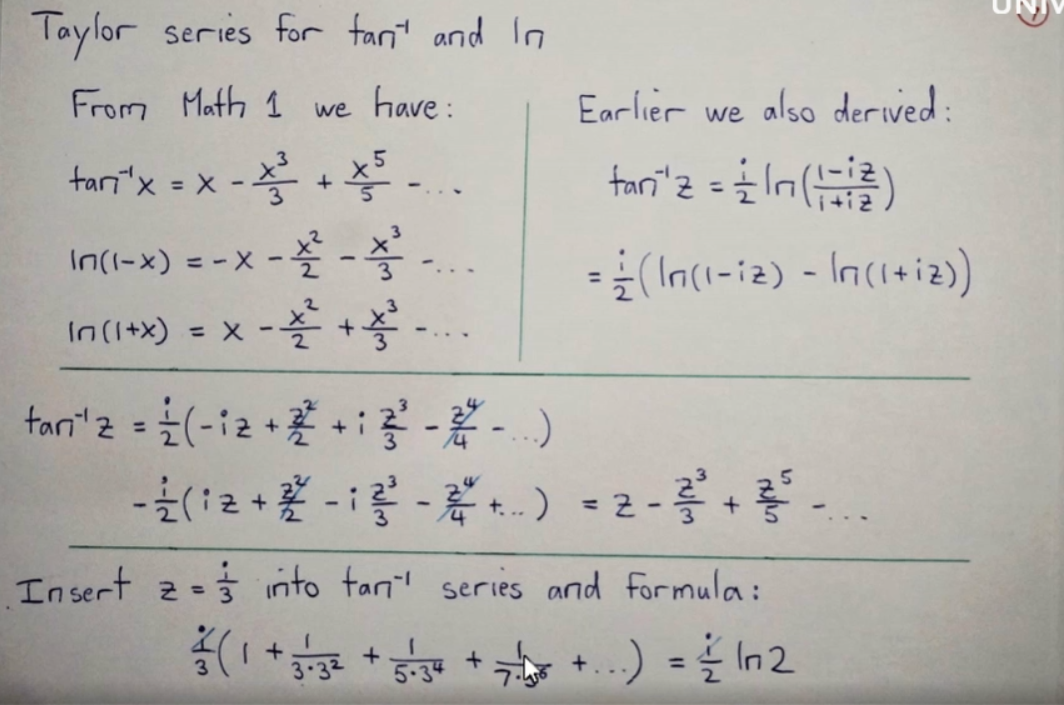 UNIV
Taylor series for tan⁻¹ and ln
From Math 1 we have:
tan⁻¹x = x - x³/3 + x⁵/5 - ...
ln(1-x) = -x - x²/2 - x³/3 - ...
ln(1+x) = x - x²/2 + x³/3 - ...
Earlier we also derived:
tan⁻¹z = i/2 ln((1-iz)/(1+iz))
= i/2 (ln(1-iz) - ln(1+iz))
tan⁻¹z = i/2 (-iz + z²/2 + i z³/3 - z⁴/4 - ...)
- i/2 (iz + z²/2 - i z³/3 - z⁴/4 + ...) = z - z³/3 + z⁵/5 - ...
Insert z = i/3 into tan⁻¹ series and formula:
i/3 (1 + 1/(3·3²) + 1/(5·3⁴) + 1/(7·3⁶) + ...) = i/2 ln2